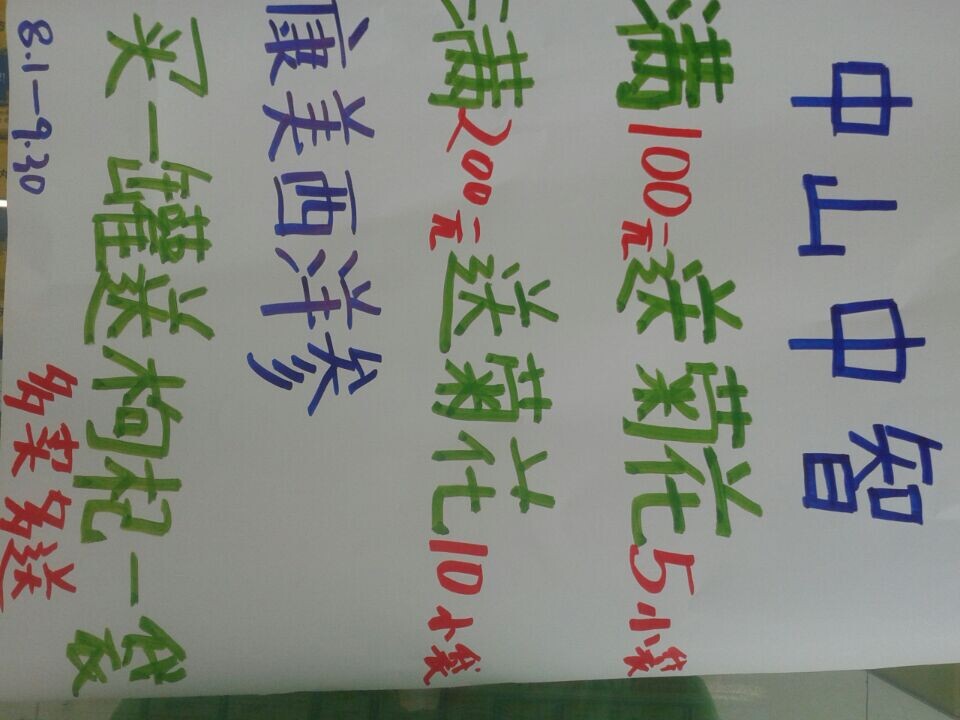 中山中智
满100元送菊花5小袋
满200元送菊花10小袋
康美西洋参
买一罐送枸杞一袋
多买多送
8.1—9.30